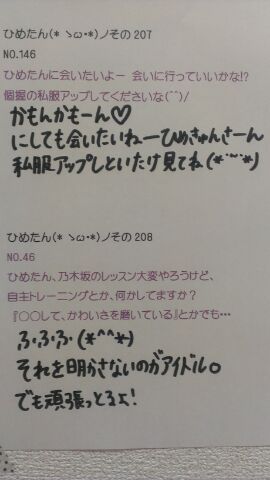 ひめたん(* ゝω･*)ノその207
NO.146
ひめたんに会いたいよー 会いに行っていいかな!?
個握の私服アップしてくださいな(^^)/
かもんかもーん♡
にしても会いたいねーひめきゅんきーん
私服アップしといたけ見てね(*¨*)
ひめたん(* ゝω･*)ノその208
NO.46
ひめたん、乃木坂のレッスン大変やろうけど、
自主トレーニングとか、何かしてますか?
『○○して、かわいさを磨いている』とかでも…
ふ・ふ・ふ(*^^*)
それを明かさないのがアイドル。
でも頑張っとるよ!